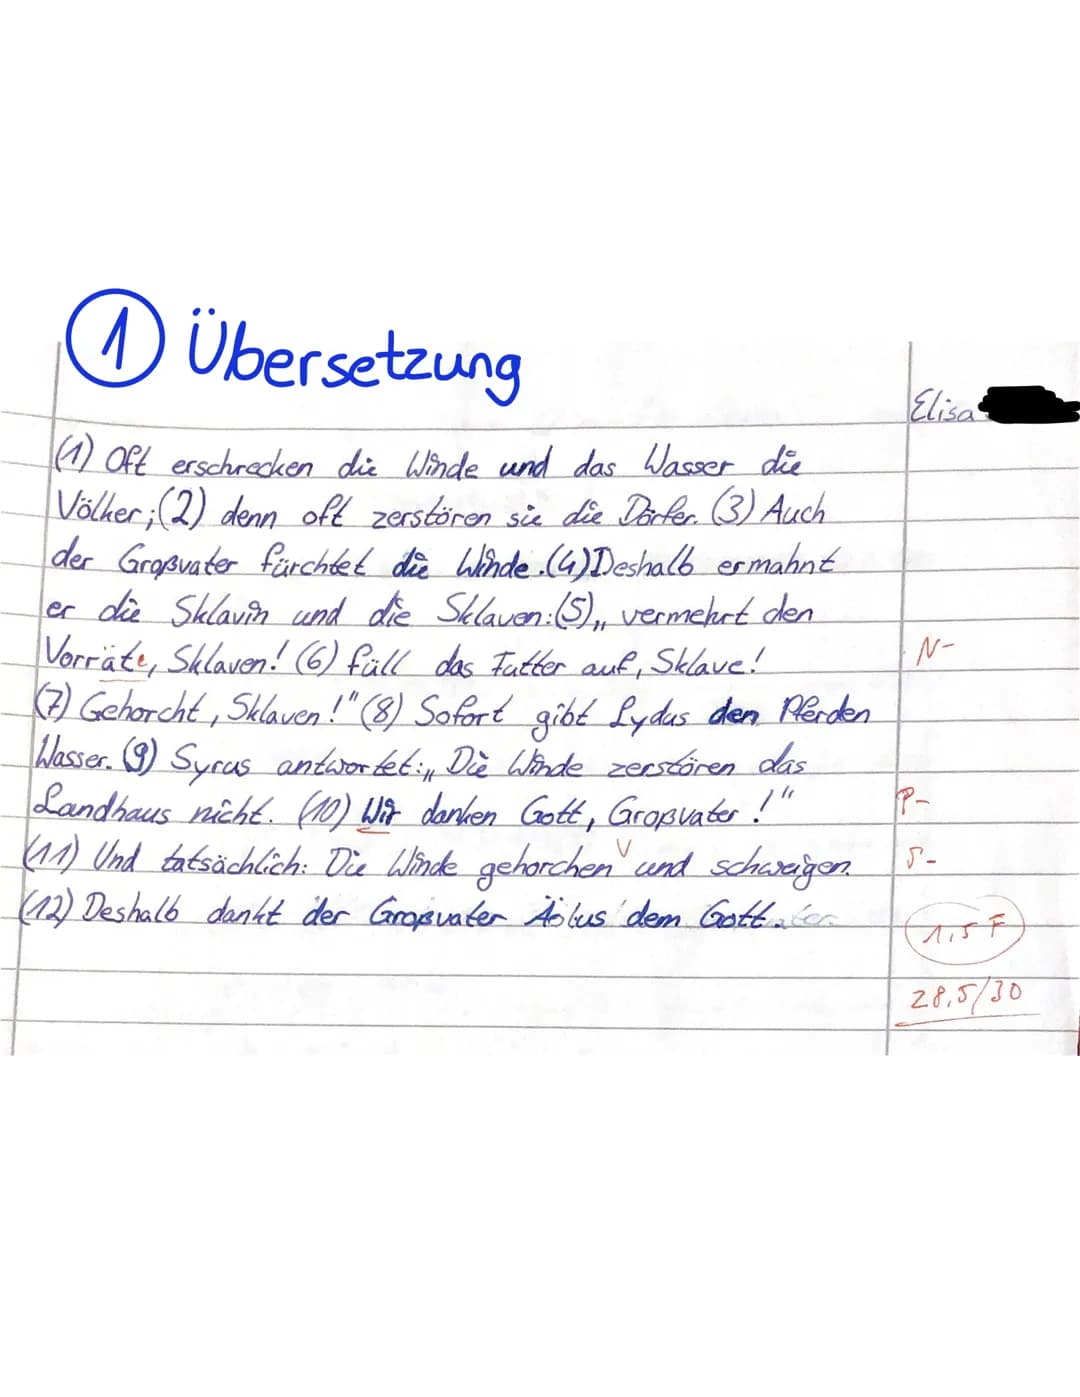 1 Übersetzung
Elisa
(1) Oft erschrecken die Winde und das Wasser die
Völker; (2) denn oft zerstören sie die Dörfer. (3) Auch
der Großvater fürchtet die Winde. (4) Deshalb ermahnt
er die Sklavin und die Sklaven: (5) „vermehrt den
Vorräte, Sklaven! (6) füll das Futter auf, Sklave!
N-
(7) Gehorcht, Sklaven!" (8) Sofort gibt Lydus den Pferden
Wasser. (9) Syrus antwortet: „Die Winde zerstören das
Landhaus nicht. (10) Wir danken Gott, Großvater!"
P-
(11) Und tatsächlich: Die Winde gehorchen V und schweigen.
S-
(12) Deshalb dankt der Großvater Äolus dem Gott.
1,5 F
28,5/30